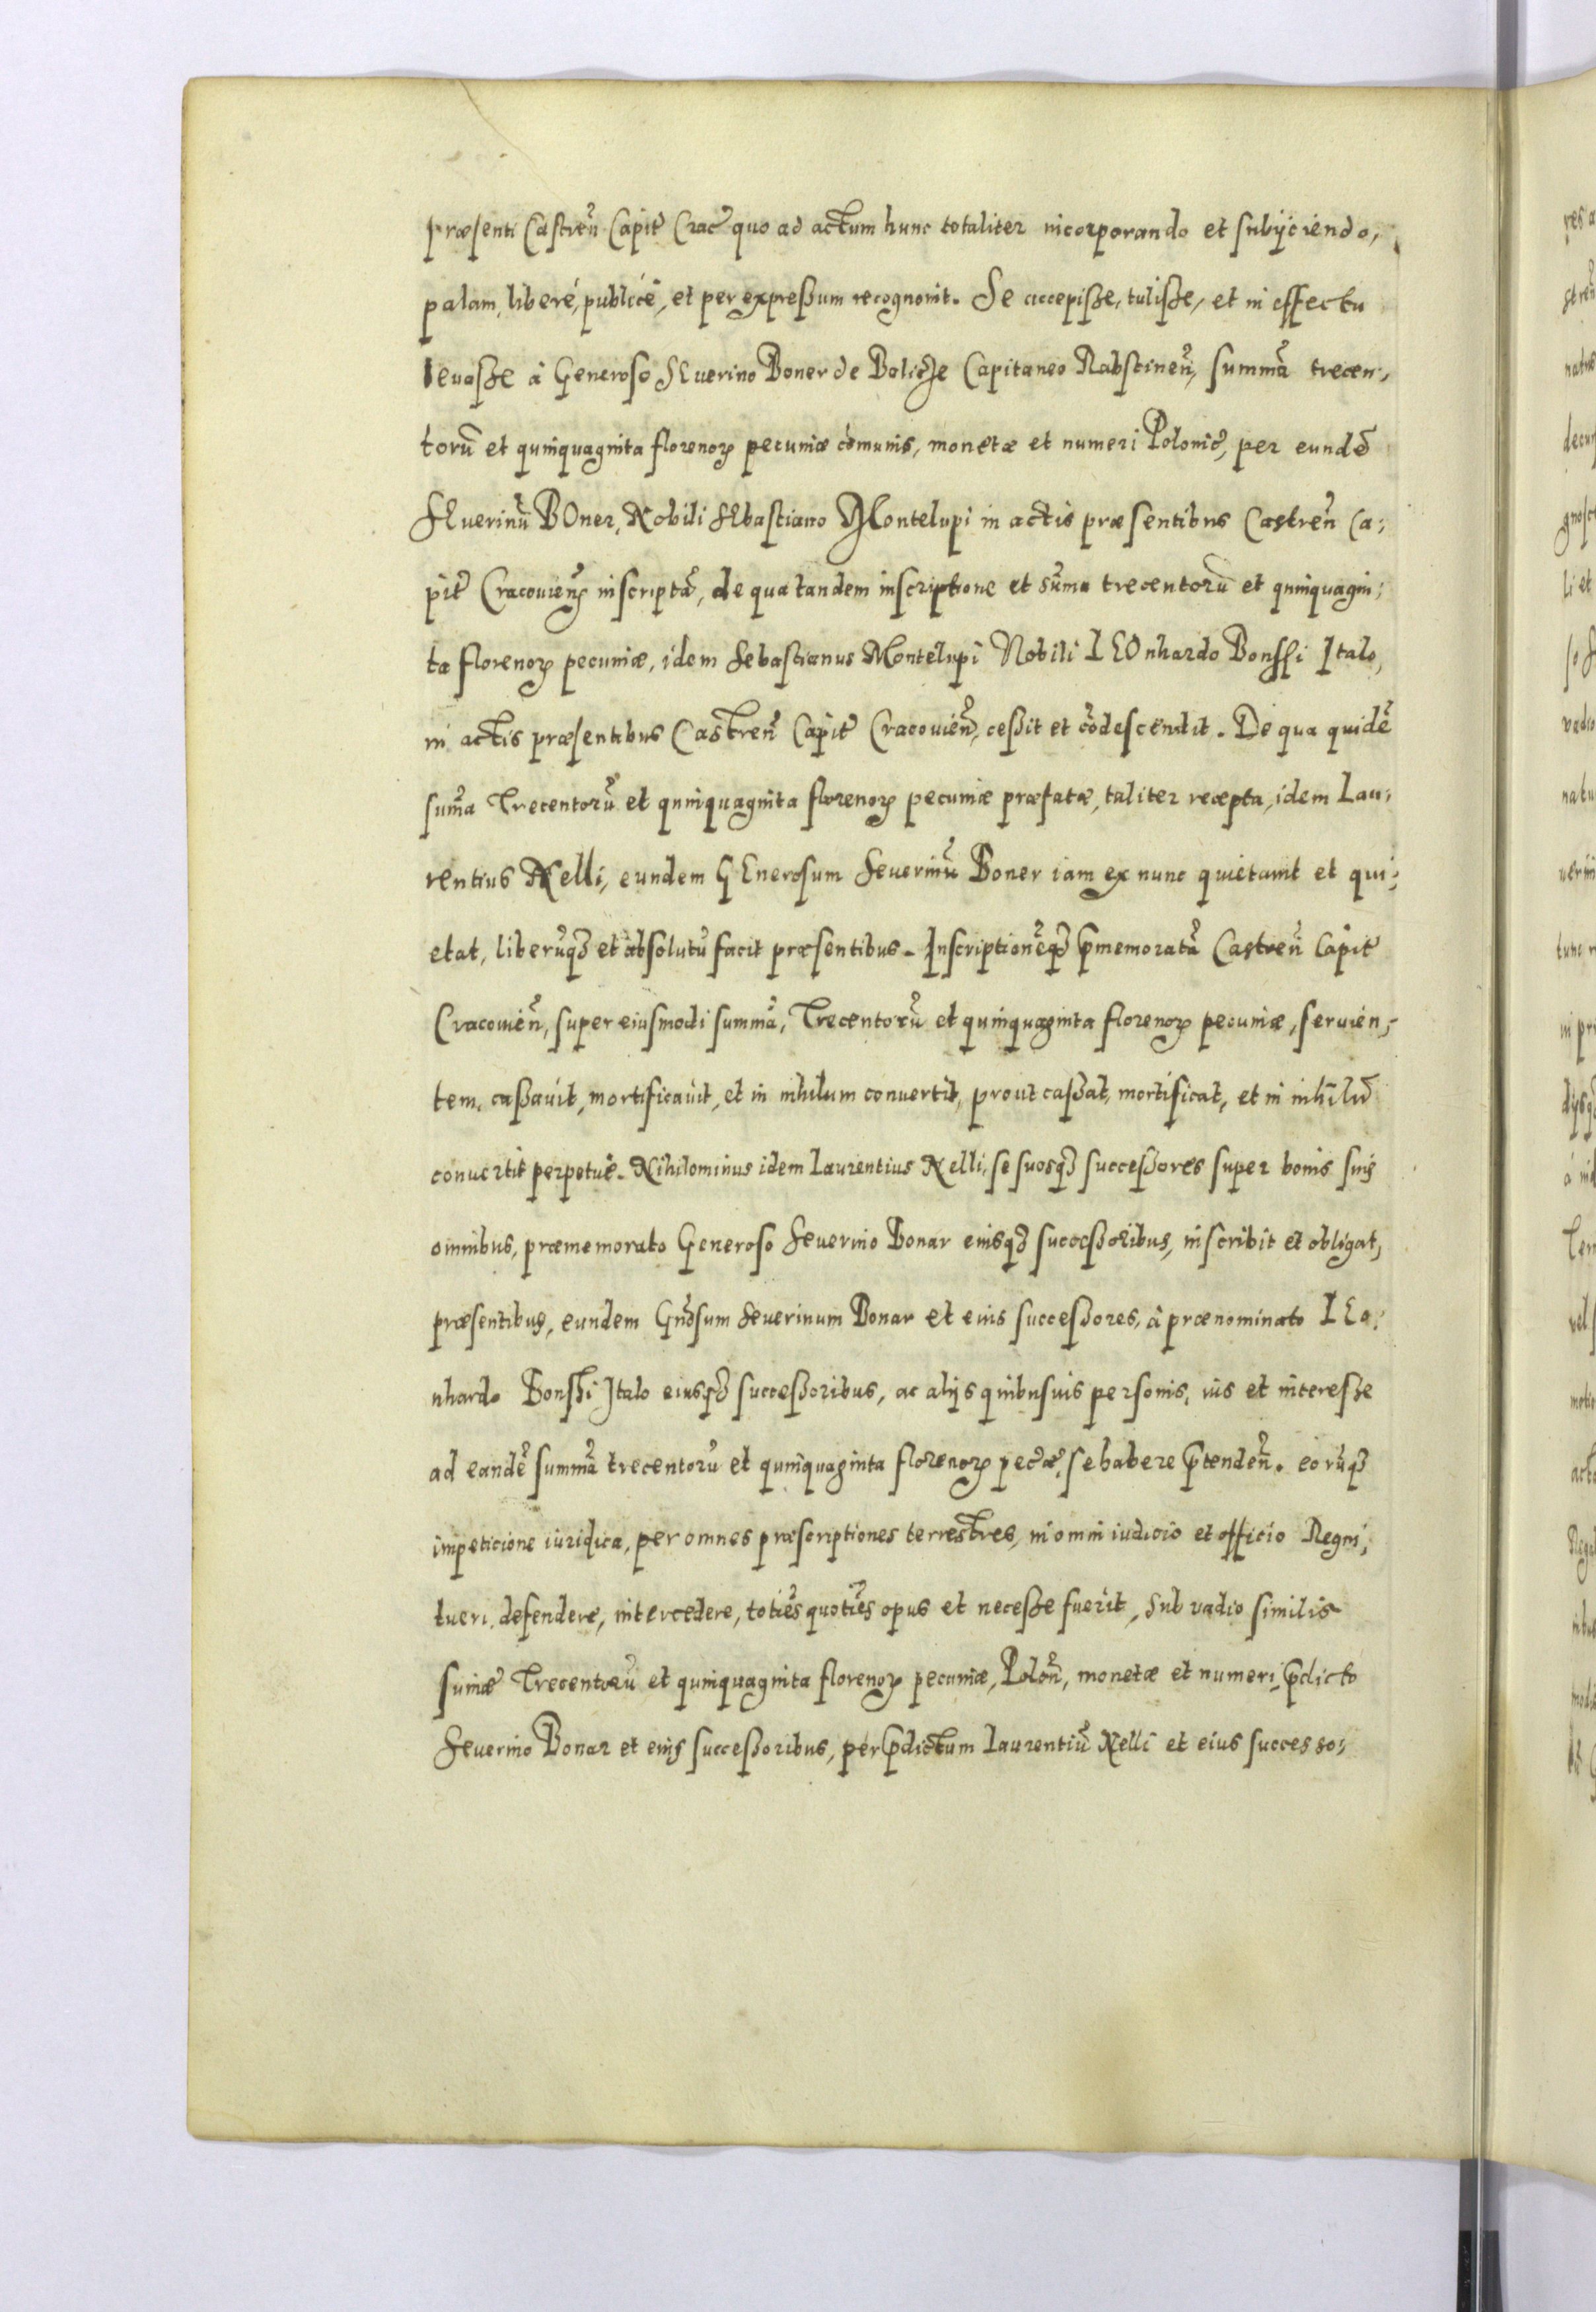 præsenti Castreñ Capitꝭ Cracꝭ quo ad actum hunc totaliter incorporando et subijciendo,
palam, liberé, publicé, et per expreßum recognouit. Se accepiße, tuliße, et in effectu
leuaße á Generoso SEuerino Boner de Balicze Capitaneo Rabstineñ, summã trecen,
torũ et quinquaginta florenoꝝ pecuniæ cõmunis, monetæ et numeri Polonicꝭ, per eundẽ
SEuerinũ BOner, Nobili SEbastiano Montelupi in actis præsentibus Castreñ Ca,
pitꝭ Cracouieñ inscriptã, de qua tandem inscriptione et sũma trecentorũ et quinquagin,
ta florenoꝝ pecuniæ, idem Sebastianus Montelupi Nobili LEOnhardo Bonssi Italo,
in actis præsentibus Castreñ Capitꝭ Cracouieñ, ceßit et cõdescendit. De qua quidẽ
sum̃a Trecentorũ et quinquaginta florenoꝝ pecuniæ præfatæ, taliter recepta, idem Lau,
rentius Nelli, eundem GEnerosum Seuerinũ Boner iam ex nunc quietauit et qui,
etat, liberũqꝫ et absolutũ facit præsentibus. Inscriptionẽqꝫ p̃memoratã Castreñ Capitꝭ
Cracouieñ, super eiusmodi summã, Trecentorũ et quinquaginta florenoꝝ pecuniæ, seruien,
tem, caßauit, mortificauit, et in nihilum conuertit, prout caßat, mortificat, et in nihilũ
conuertit perpetué. Nihilominus idem Laurentius Nelli, se suosqꝫ succeßores super bonis suis
omnibus, præmemorato Generoso Seuerino Bonar eiusqꝫ succeßoribus, inscribit et obligat,
præsentibus, eundem Gñosum Seuerinum Bonar et eius succeßores, á prænominato LEo,
nhardo Bonßi Italo eiusqꝫ succeßoribus, ac alijs quibusuis personis, ius et intereße
ad eandẽ summã trecentorũ et quinquaginta florenoꝝ pecꝭæ, se habere p̃tendeñ. eorũqꝫ
impeticione iuridica, per omnes præscriptiones terrestres, in omni iudicio et officio Regni,
tueri, defendere, intercedere, toties quoties opus et neceße fuerit, Sub vadio similis
sum̃æ Trecentorũ et quinquaginta florenoꝝ pecuniæ, Poloñ, monetæ et numeri, p̃dicto
Seuerino Bonar et eius succeßoribus, per p̃dictum Laurentiũ Nelli et eius successo,